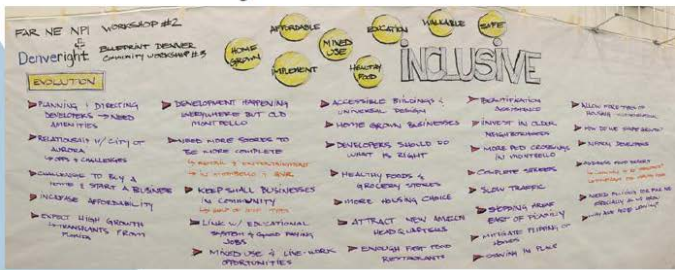 FAR NE NPI WORKSHOP #2
&
Denveright BLUEPRINT DENVER
COMMUNITY WORKSHOP #3
HOME GROWN
AFFORDABLE
IMPLEMENT
MIXED USE
EDUCATION
HEALTHY FOOD
WALKABLE
SAFE
INCLUSIVE
EVOLUTION
PLANNING & DIRECTING
DEVELOPERS → NEED
AMENITIES
RELATIONSHIP W/ CITY OF
AURORA
↳ OPPS & CHALLENGES
CHALLENGING TO BUY A
HOME & START A BUSINESS
INCREASE AFFORDABILITY
EXPECT HIGH GROWTH
↳ TRANSPLANTS FROM
DEVELOPMENT HAPPENING
EVERYWHERE BUT OLD
MONTBELLO
NEED MORE SCORES TO
BE MORE COMPLETE
IN MONTBELLO & GVR
KEEP SMALL BUSINESSES
IN COMMUNITY
LINK W/ EDUCATIONAL
SYSTEM & GOOD PAYING
JOBS
MIXED USE & LIVE-WORK
OPPORTUNITIES
ACCESSIBLE BUILDINGS &
UNIVERSAL DESIGN
HOME GROWN BUSINESSES
DEVELOPERS SHOULD DO
WHAT IS RIGHT
HEALTHY FOODS &
GROCERY STORES
MORE HOUSING CHOICE
ATTRACT NEW AMAZON
HEADQUARTERS
ENOUGH FAST FOOD
RESTAURANTS
BEAUTIFICATION
ASSISTANCE
INVEST IN OLDER
NEIGHBORHOODS
MORE PED CROSSINGS
IN MONTBELLO
COMPLETE STREETS
SLOW TRAFFIC
SHOPPING AREAS
EAST OF
MITIGATE FLIPPING OF
HOMES
IN PLACE
ALLOW
HOUSING
HOW DO WE
DEVELOPERS
NEED
ESPECIALLY